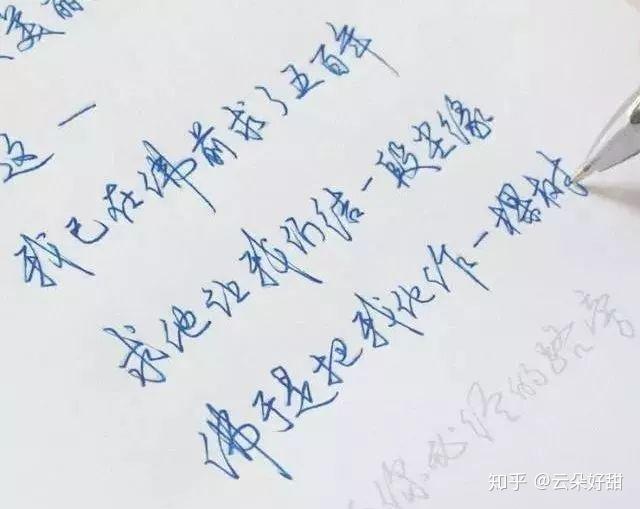 美丽
这一
我已在佛前求了五百年
求他让我们结一段尘缘
佛于是把我化作一棵树
你必经的路旁
知乎 @云朵好甜